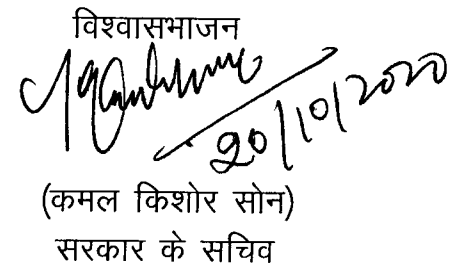 विश्वासभाजन
20/10/2020
(कमल किशोर सोन)
सरकार के सचिव